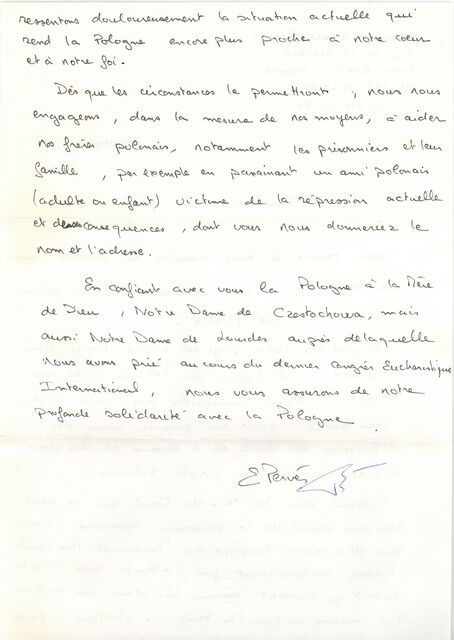 ressentons douloureusement la situation actuelle qui
rend la Pologne encore plus proche à notre coeur
et à notre foi.
Dès que les circonstances le permettront, nous nous
engageons, dans la mesure de nos moyens, à aider
nos frères polonais, notamment les prisonniers et leur
famille, par exemple en parrainant un ami polonais
(adulte ou enfant) victime de la répression actuelle
et de ses consequences, dont vous nous donneriez le
nom et l'adresse.
En confiant avec vous la Pologne à la Mère
de Dieu, Notre Dame de Czestochowa, mais
aussi Notre Dame de Lourdes auprès de laquelle
nous avons prié au cours du dernier Congrès Eucharistique
International, nous vous assurons de notre
profonde solidarité avec la Pologne